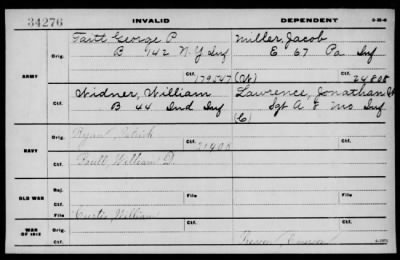 34276
INVALID
DEPENDENT
ARMY
Orig.
George P
B 142 N. Y. Inf
Ctf.
179547
Miller, Jacob
E 67 Pa Inf
(W)
Ctf.
24808
Widner, William
B 44 Ind Inf
Ctf.
Lawrence, Jonathan
Sgt A 8 Mo Inf
(C)
Ctf.
NAVY
Orig.
Ryan, Patrick
Ctf.
Ctf.
William D.
OLD WAR
Rej.
File
File
WAR OF 1812
Orig.
Curtis, William
Ctf.
Ctf.